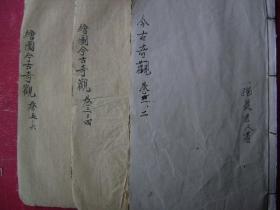 繪圖今古奇觀 卷五、六
繪圖今古奇觀 卷三、四
今古奇觀 卷一、二